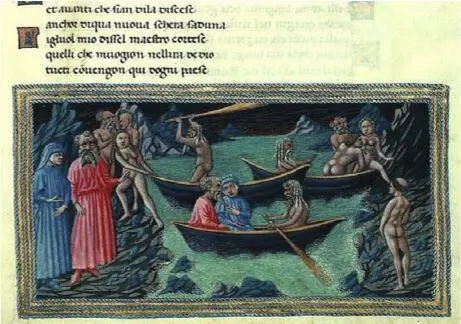 et auanti che sian dila discese
anchor diqua nuoua schera saduna
Figluol mio dissel maestro cortese
quelli che muoion nellira de dio
tucti conuengon qui dogni paese